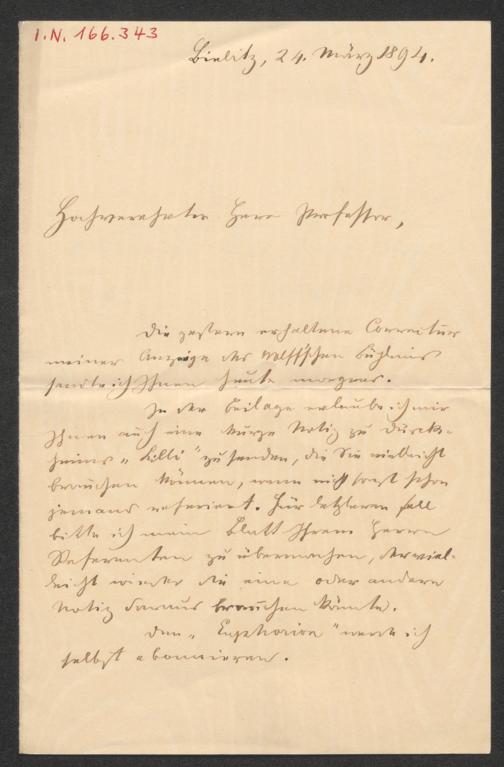 I.N. 166.343
Bielitz, 24. März 1894.
Hochverehrter Herr Professor,
Die gestern erhaltene Correctur
meiner Anzeige des Wolff'schen Büchleins
sandte ich Ihnen heute morgens.
In der Beilage erlaube ich mir
Ihnen auch eine kurze Notiz zu
heims „Lilli" zu senden, die Sie vielleicht
brauchen können, wenn nicht sonst schon
jemand referiert. Für letzteren Fall
bitte ich mein Blatt Ihrem Herrn
Referenten zu übermachen, der viel-
leicht wieder die eine oder andere
Notiz daraus brauchen könnte.
Den „Euphorion" werde ich
selbst abonnieren.